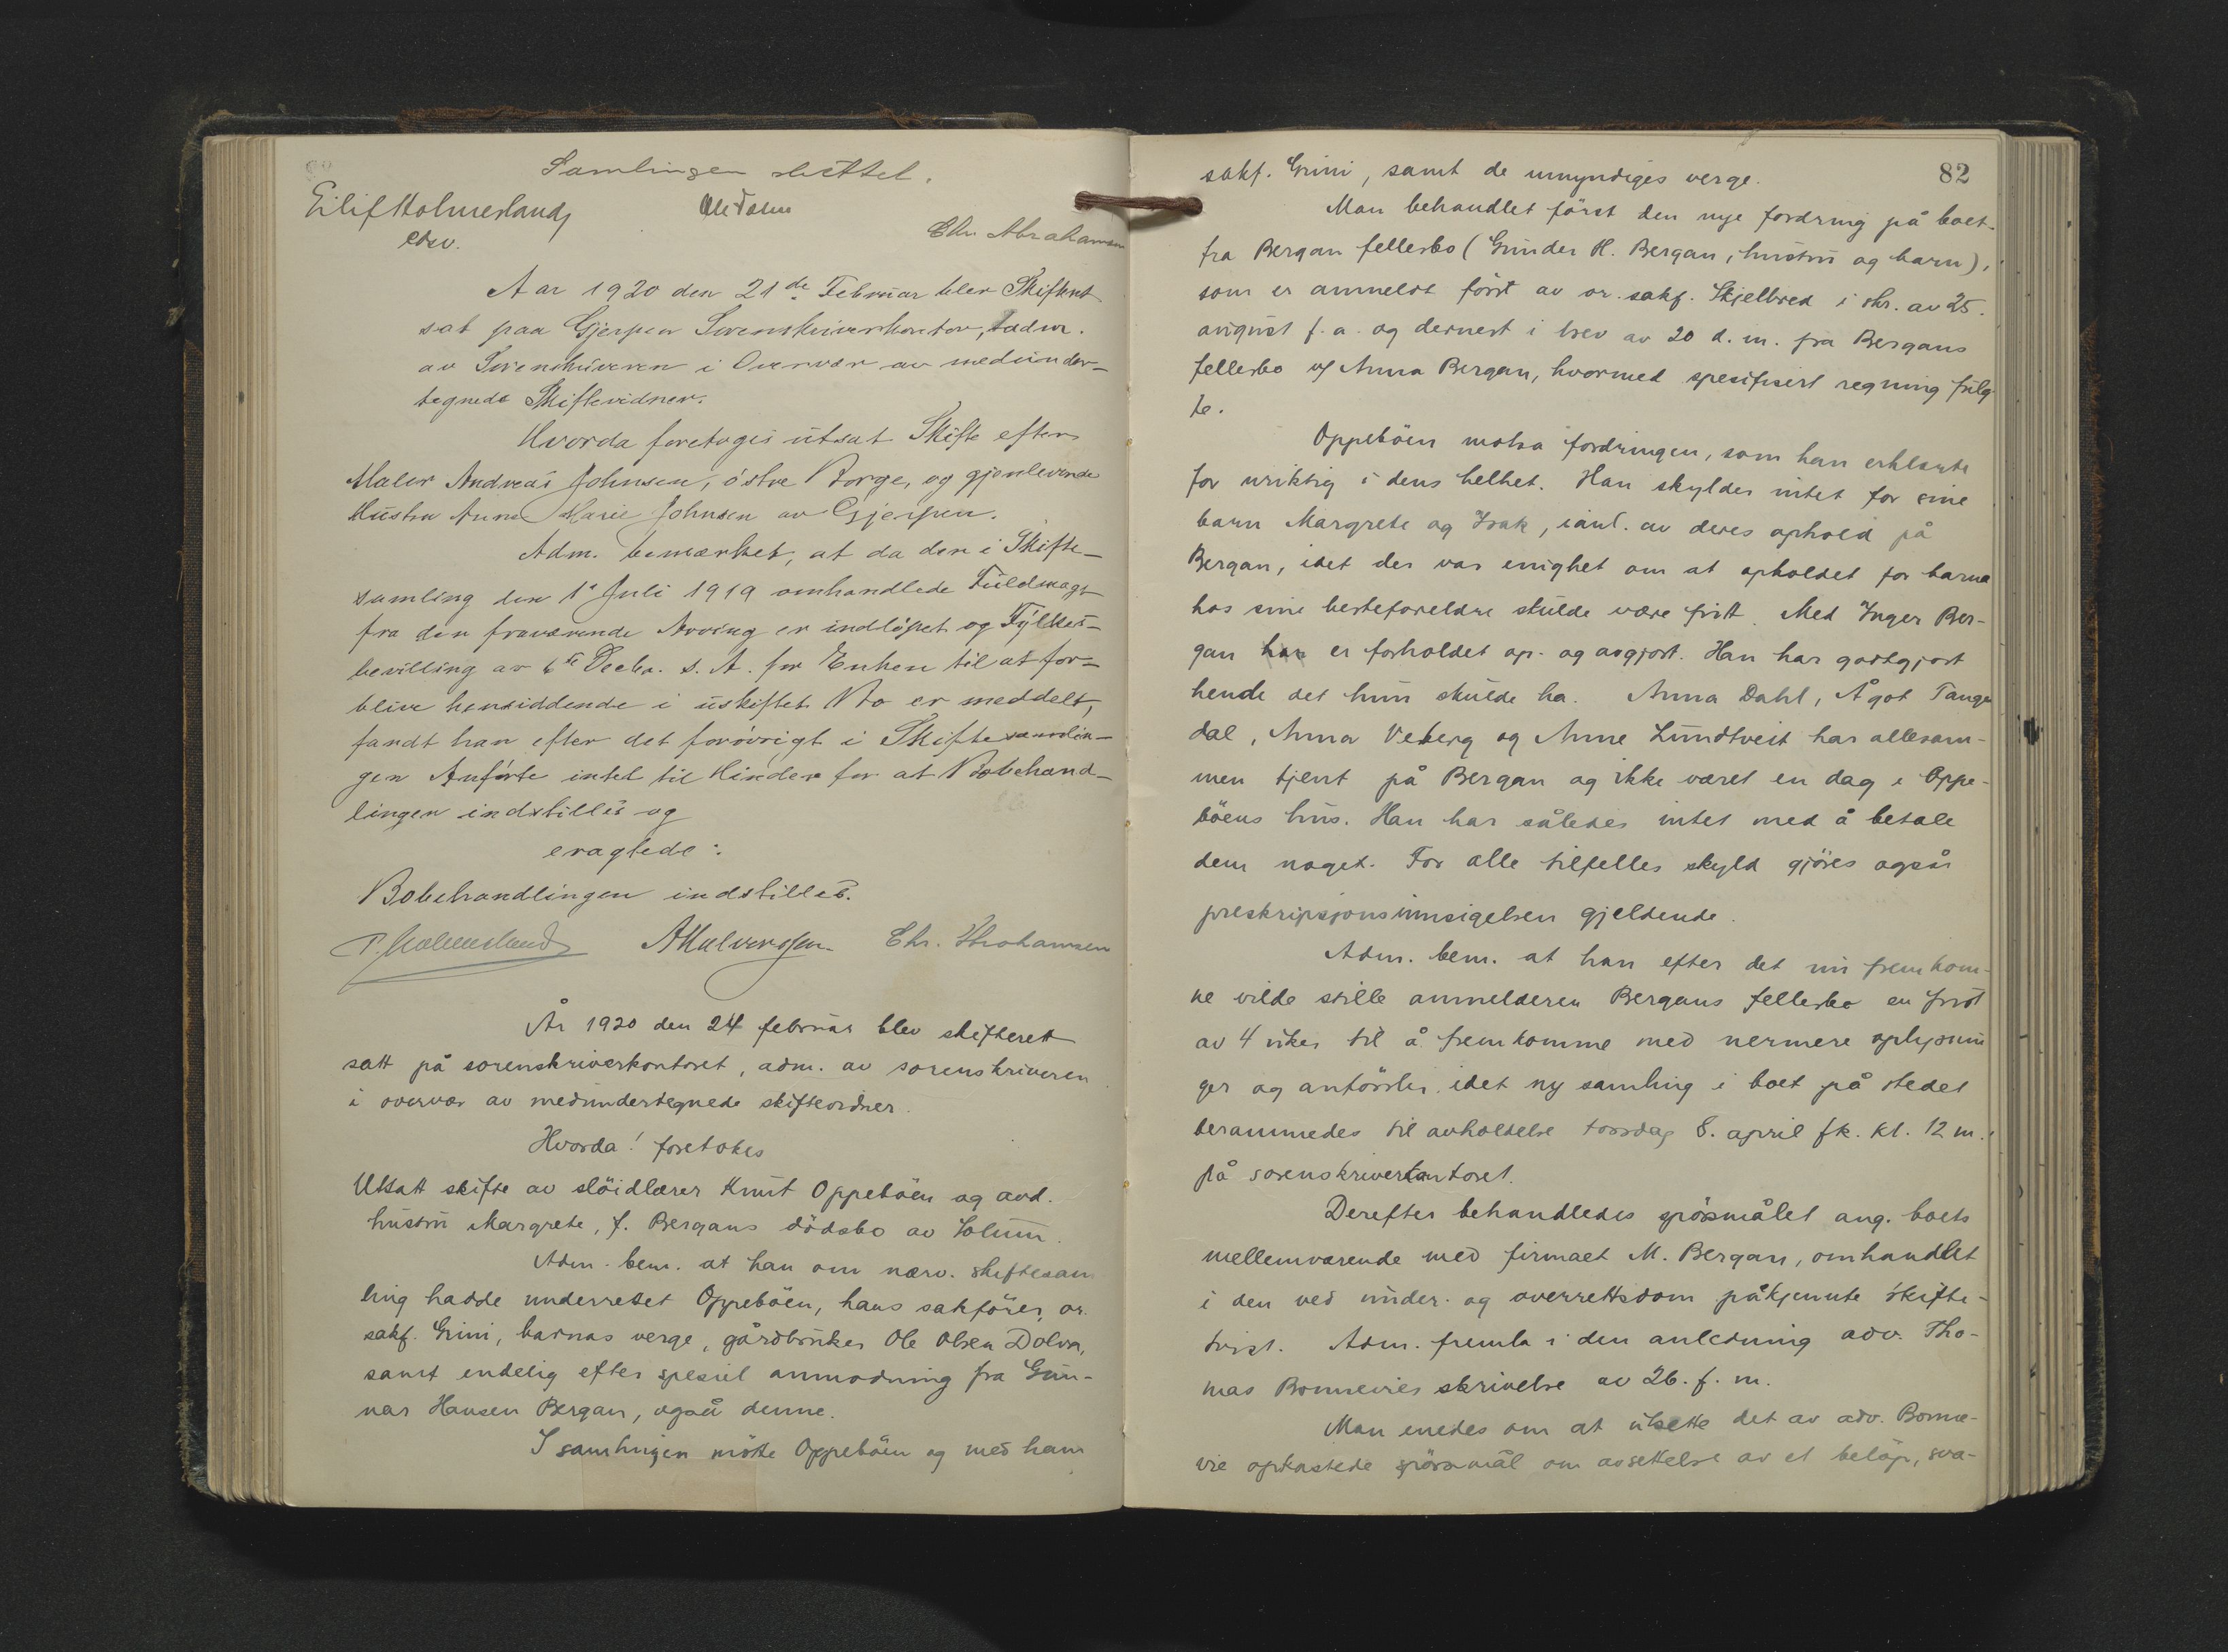 Samlingen sluttet.
Eilif Holmesland
edsv.
Chr. Abrahamsen
Aar 1920 den 21de Februar blev Skifteret
sat paa Gjerpen Sorenskriverkontor, adm.
av Sorenskriveren i Overvær av medunder-
tegnede Skiftevidner.
Hvorda foretoges utsat Skifte efter
Maler Andreas Johnsen, östre Borge, og gjenlevende
Hustru Anne Marie Johnsen av Gjerpen.
Adm. bemærket, at da den i Skifte-
samling den 1' Juli 1919 omhandlede Fuldmagt
fra den fraværende Arving er indlöpet og Fylkes-
bevilling av 6te Decbr. s. A. for Enken til at for-
blive hensiddende i uskiftet Bo er meddelt,
fandt han efter det forövrigt i Skiftesamlin-
gen Anförte intet til Hinder for at Bobehand-
lingen indstilles og
eragtede:
Bobehandlingen indstilles.
P. Holmesland AHalvorssen Chr. Abrahamsen
År 1920 den 24 februar blev skifterett
satt på sorenskriverkontoret, adm. av sorenskriveren
i overvær av medundertegnede skiftevidner.
Hvorda! foretokes
Utsatt skifte av slöidlærer Knut Oppeböen og avd.
hustru Margrete, f. Bergans dödsbo av Solum.
Adm. bem. at han om nærv. skiftesam
ling hadde underrettet Oppeböen, hans sakförer, or.
sakf. Grini, barnas verge, gårdbruker Ole Olsen Dolva,
samt endelig efter spesiel anmodning fra Gun-
nar Hansen Bergan, også denne.
I samlingen mötte Oppeböen og med ham
82
sakf. Grini, samt de umyndiges verge.
Man behandlet först den nye fordring på boet
fra Bergan fellesbo (Gunder H. Bergan, hustru og barn),
som er anmeldt först av or. sakf. Skjelbred i skr. av 25.
august f. a. og dernest i brev av 20 d. m. fra Bergans
fellesbo v/ Anna Bergan, hvormed spesifisert regning fulg-
te.
Oppeböen motsa fordringen, som han erklærte
for uriktig i dens helhet. Han skylder intet for sine
barn Margrete og Isak, i anl. av deres ophold på
Bergan, idet der var enighet om at opholdet for barna
hos sine besteforeldre skulde være fritt. Med Inger Ber-
gan han er forholdet op- og avgjort. Han har godtgjort
hende det hun skulde ha. Anna Dahl, Ågot Tangen
dal, Anna Veberg og Anne Lundtveit har allesam-
men tjent på Bergan og ikke været en dag i Oppe-
böens hus. Han har således intet med å betale
dem noget. For alle tilfelles skyld gjöres også
preskripsjonsinnsigelsen gjeldende.
Adm. bem. at han efter det nu fremkom-
ne vilde stille anmelderen Bergans fellesbo en frist
av 4 uker til å fremkomme med nermere oplysnin
ger og anförsler, idet ny samling i boet på stedet
berammedes til avholdelse torsdag 8. april fk. kl. 12 m.
på sorenskriverkontoret.
Derefter behandledes spörsmålet ang. boets
mellemværende med firmaet M. Bergan, omhandlet
i den ved under- og overrettsdom påkjennte skifte-
tvist. Adm. fremla i den anledning adv. Tho-
mas Bonnevies skrivelse av 26. f. m.
Man enedes om at utsette det av adv. Bonne-
vie opkastede spörsmål om avsettelse av et belöp, sva-